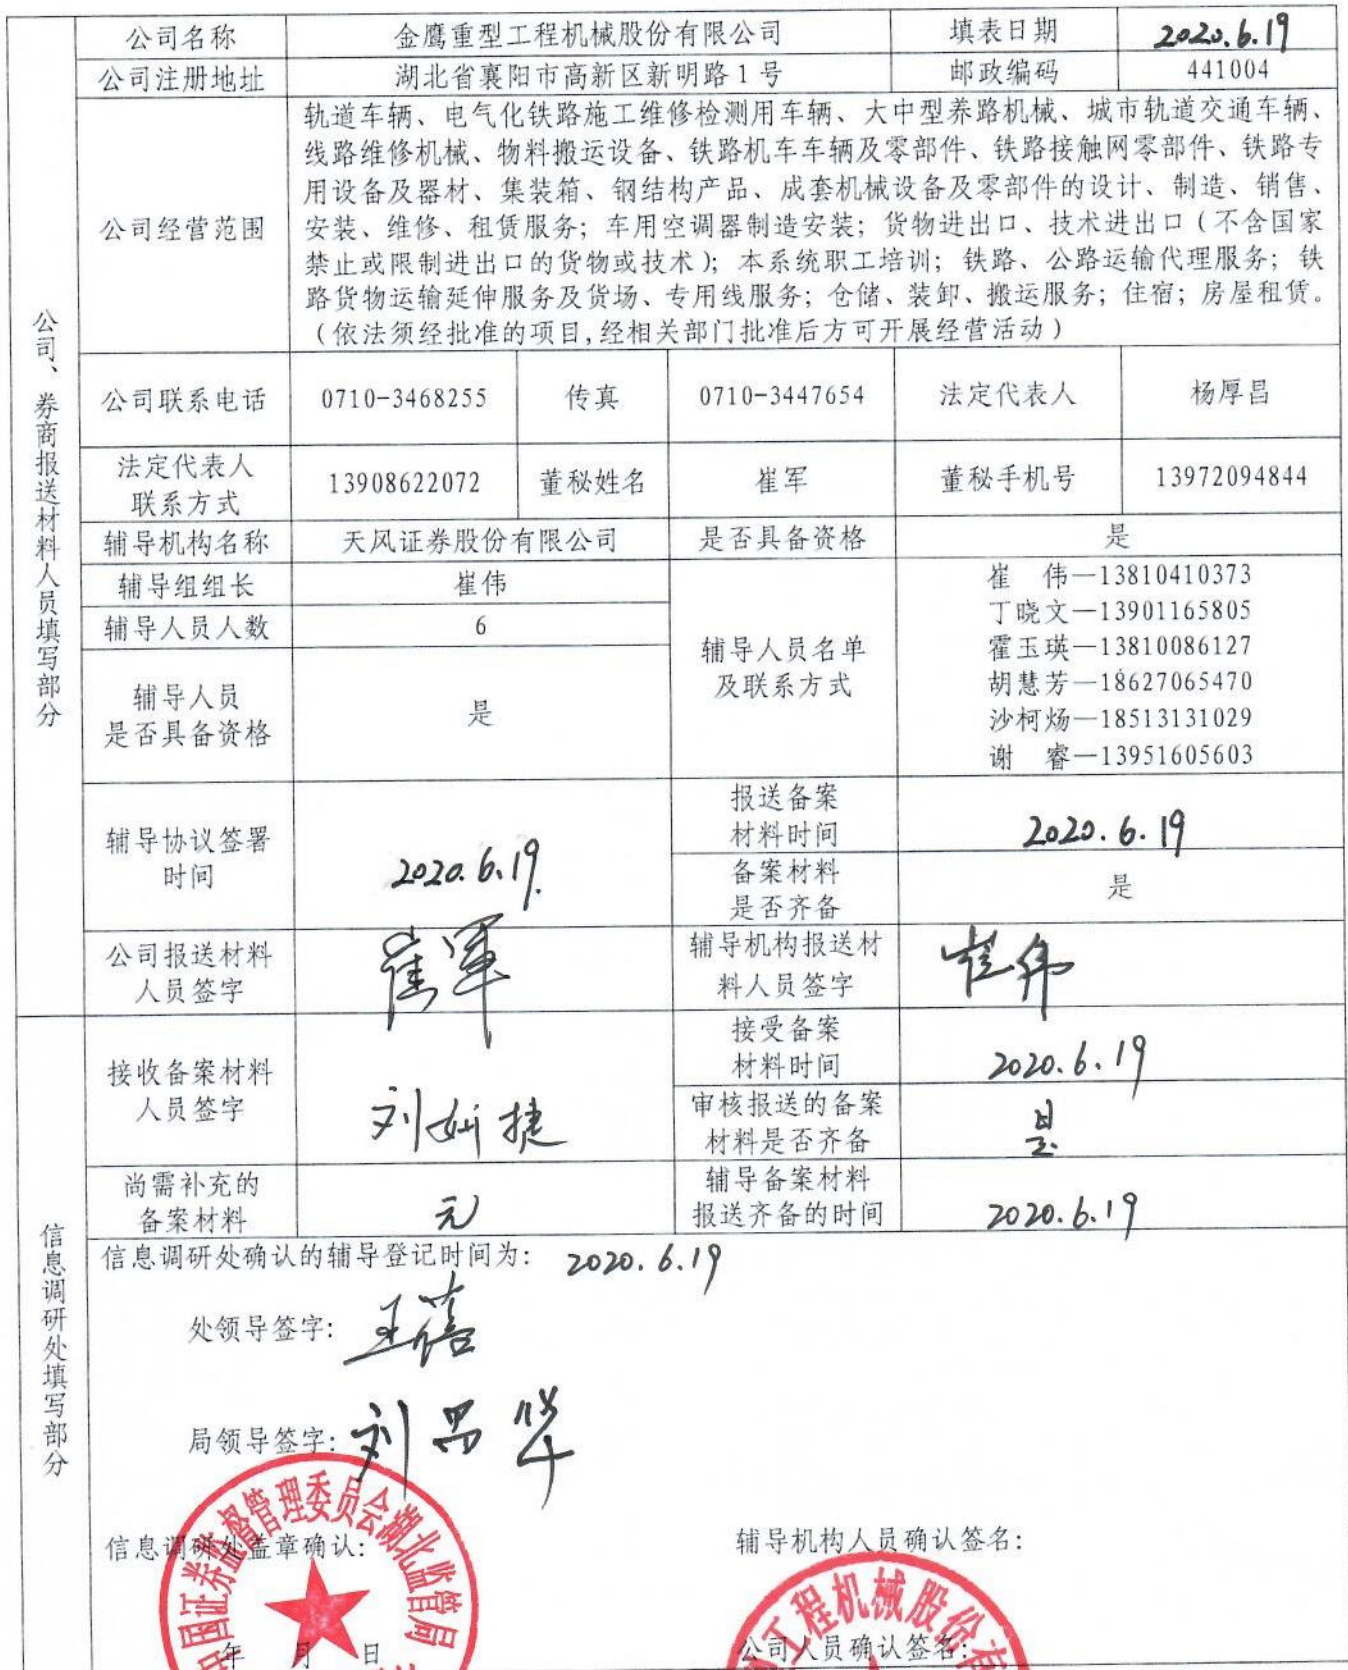 公司、券商报送材料人员填写部分
公司名称 金鹰重型工程机械股份有限公司 填表日期 2020.6.19
公司注册地址 湖北省襄阳市高新区新明路1号 邮政编码 441004
公司经营范围
轨道车辆、电气化铁路施工维修检测用车辆、大中型养路机械、城市轨道交通车辆、
线路维修机械、物料搬运设备、铁路机车车辆及零部件、铁路接触网零部件、铁路专
用设备及器材、集装箱、钢结构产品、成套机械设备及零部件的设计、制造、销售、
安装、维修、租赁服务；车用空调器制造安装；货物进出口、技术进出口（不含国家
禁止或限制进出口的货物或技术）；本系统职工培训；铁路、公路运输代理服务；铁
路货物运输延伸服务及货场、专用线服务；仓储、装卸、搬运服务；住宿；房屋租赁。
（依法须经批准的项目,经相关部门批准后方可开展经营活动）
公司联系电话 0710-3468255 传真 0710-3447654 法定代表人 杨厚昌
法定代表人
联系方式
13908622072 董秘姓名 崔军 董秘手机号 13972094844
辅导机构名称 天风证券股份有限公司 是否具备资格 是
辅导组组长 崔伟
辅导人员人数 6
辅导人员
是否具备资格
是
辅导人员名单
及联系方式
崔 伟—13810410373
丁晓文—13901165805
霍玉瑛—13810086127
胡慧芳—18627065470
沙柯炀—18513131029
谢 睿—13951605603
辅导协议签署
时间
2020.6.19.
报送备案
材料时间
2020.6.19
备案材料
是否齐备
是
公司报送材料
人员签字
崔军
辅导机构报送材
料人员签字
崔伟
信息调研处填写部分
接收备案材料
人员签字
接受备案
材料时间
2020.6.19
审核报送的备案
材料是否齐备
是
尚需补充的
备案材料
无
辅导备案材料
报送齐备的时间
2020.6.19
信息调研处确认的辅导登记时间为： 2020.6.19
处领导签字：
局领导签字：
信息调研处盖章确认：
辅导机构人员确认签名：
年 月 日
公司人员确认签名：
国证券监督管理委员会湖北监管局
工程机械股份有